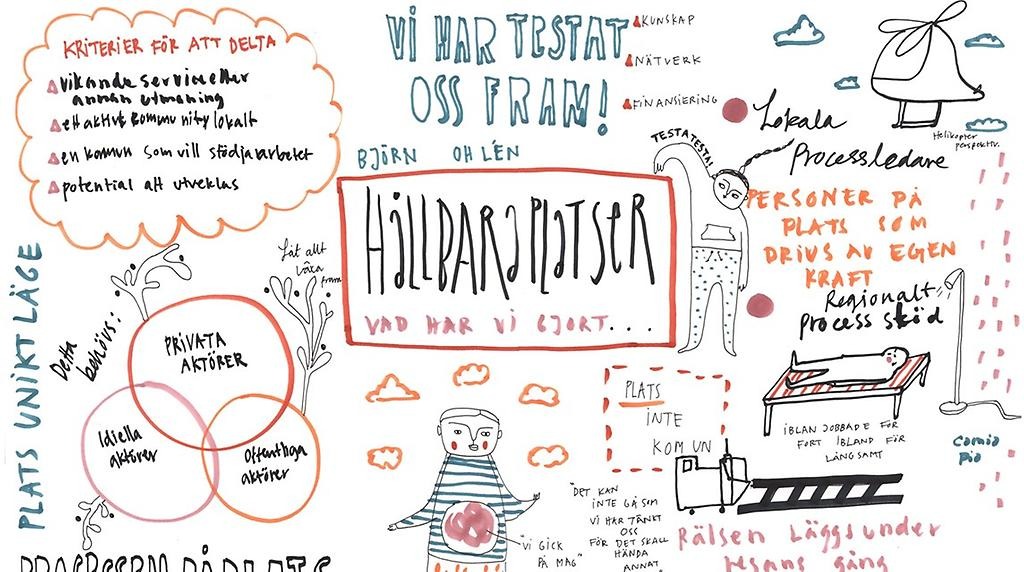 KRITERIER FÖR ATT DELTA
vikande service eller
annan utmaning
ett aktivt community lokalt
en kommun som vill stödja arbetet
potential att utvecklas
VI HAR TESTAT
OSS FRAM!
KUNSKAP
NÄTVERK
FINANSIERING
BJÖRN OHLÉN
HÅLLBARA PLATSER
VAD HAR VI GJORT....
TESTA TESTA!
Lokala
Processledare
Helikopter
perspektiv.
PERSONER PÅ
PLATS SOM
DRIVS AV EGEN
KRAFT
Regionalt
process stöd
IBLAN JOBBADE FÖR
FORT IBLAND FÖR
LÅNGSAMT
PLATS UNIKT LÄGE
Detta
behövs:
Låt allt
växa
fram
PRIVATA
AKTÖRER
Idiella
aktörer
Offentliga
aktörer
PLATS
INTE
KOMUN
"VI GICK
PÅ MAG"
"DET KAN
INTE GÅ SOM
VI HAR TÄNKT
OSS
FÖR DET SKALL
HÄNDA
ANNAT
Rälsen Läggs under
resans gång
PROCESSEN PÅ PLATS